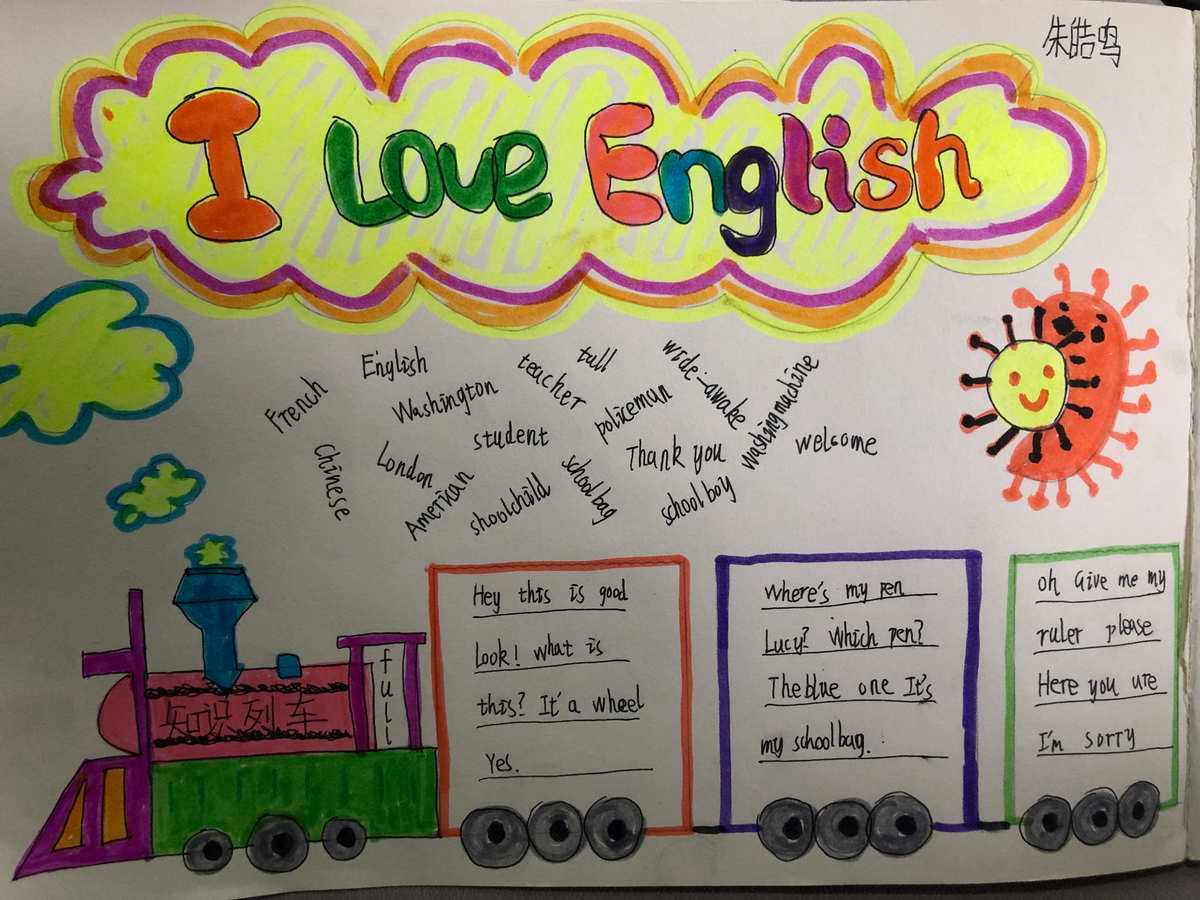 朱皓鸣
I Love English
French
English
Washington
teacher
tall
wide-awake
washing machine
policeman
student
Thank you
welcome
Chinese
London
American
shoolchild
school bag
school boy
知识列车
full
Hey this is good
Look! what is
this? It'a wheel
Yes.
Where's my pen
Lucy? Which pen?
The blue one It's
my schoolbag.
oh Give me my
ruler please
Here you are
I'm sorry